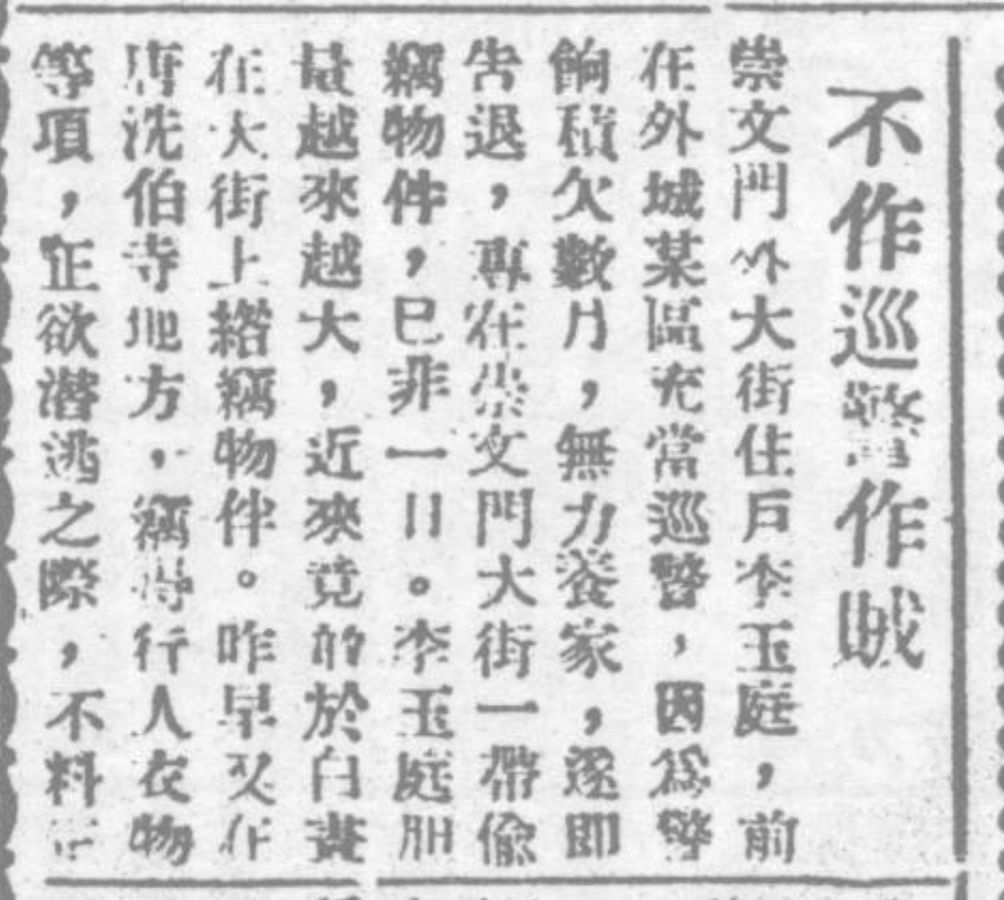 不作巡警作賊
崇文門外大街住戶李玉庭，前
在外城某區充當巡警，因爲警
餉積欠數月，無力養家，遂即
告退，專在崇文門大街一帶偷
竊物件，已非一日。李玉庭胆
量越來越大，近來竟的於白晝
在大街上綹竊物件。昨早又在
唐洗伯寺地方，竊得行人衣物
等項，正欲潜逃之際，不料